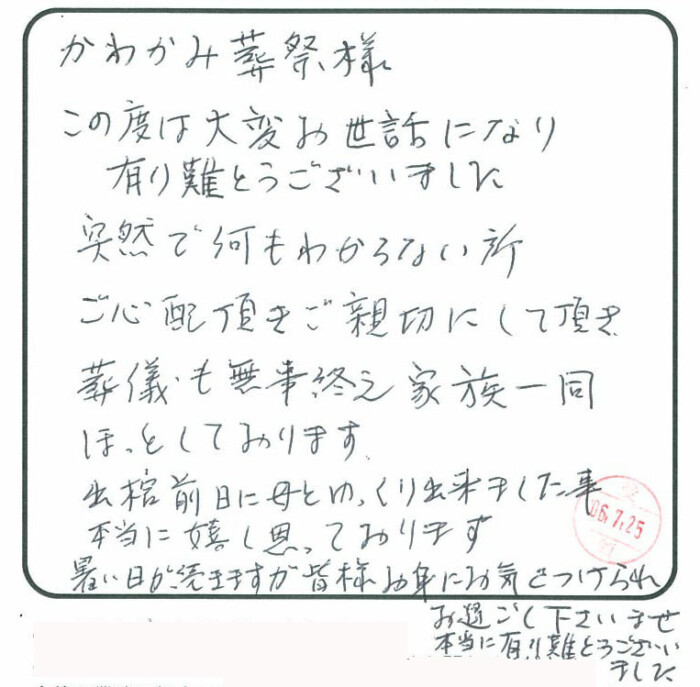 かわかみ葬祭様
この度は大変お世話になり
有り難とうございました
突然で何もわからない所
ご心配頂きご親切にして頂き
葬儀も無事終え家族一同
ほっとしております。
出棺前日に母とゆっくり出来ました事
本当に嬉し思っております
暑い日が続きますが皆様お身にお気をつけられ
お過ごし下さいませ
本当に有り難とうござい
ました
受
06.7.25